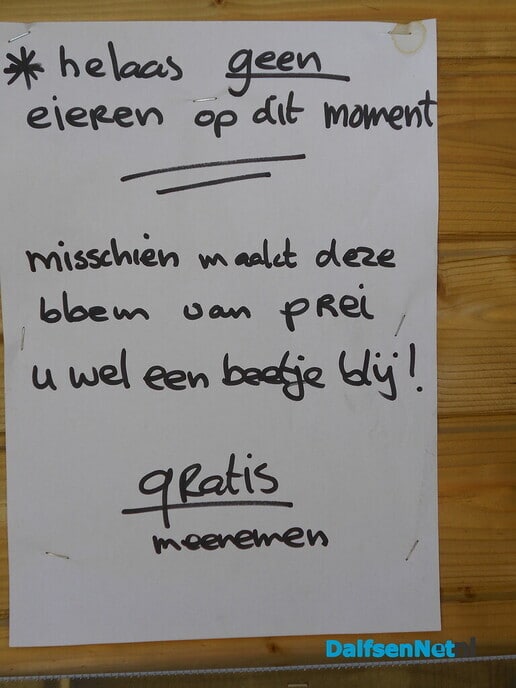 * helaas geen
eieren op dit moment
misschien maakt deze
bloem van prei
u wel een beetje blij!
gratis
meenemen
DalfsenNet.nl